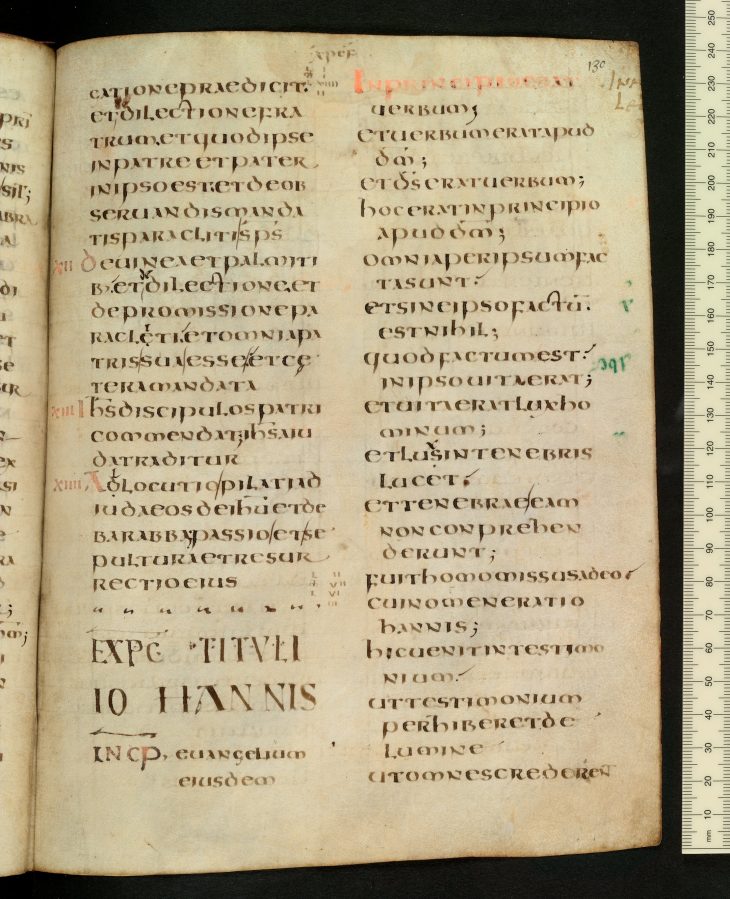 130
CATIONE PRAEDICIT.
ET DILECTIONE FRA
TRUM ET QUOD IPSE
IN PATRE ET PATER
IN IPSO EST ET DE OB
SERUANDIS MANDA
TIS PARACLITI SPS
XII DE UINEA ET PALMITI
B; ET DILECTIONE ET
DE PROMISSIONE PA
RACLETI ET OMNIA PA
TRIS SUA ESSE ET CE
TERA MANDATA
XIII IHS DISCIPULOS PATRI
COMMENDAT; IHS A IU
DA TRADITUR
XIIII ADLOCUTIO PILATI AD
IUDAEOS DE IHU ET DE
BARABBA PASSIO ET SE
PULTURA ET RESUR
RECTIO EIUS
EXPC TITVLI
IOHANNIS
INCP, EUANGELIUM
EIUSDEM
IN PRINCIPIO ERAT
UERBUM;
ET UERBUM ERAT APUD
DM;
ET DS ERAT UERBUM;
HOC ERAT IN PRINCIPIO
APUD DM;
OMNIA PER IPSUM FAC
TA SUNT.
ET SINE IPSO FACTU
EST NIHIL;
QUOD FACTUM EST.
IN IPSO UITA ERAT;
ET UITA ERAT LUX HO
MINUM;
ET LUX IN TENEBRIS
LUCET.
ET TENEBRAE EAM
NON CONPREHEN
DERUNT;
FUIT HOMO MISSUS A DEO.
CUI NOMEN ERAT IO
HANNIS;
HIC UENIT IN TESTIMO
NIUM.
UT TESTIMONIUM
PERHIBERET DE
LUMINE
UT OMNES CREDERENT
mm 10 20 30 40 50 60 70 80 90 100 110 120 130 140 150 160 170 180 190 200 210 220 230 240 250